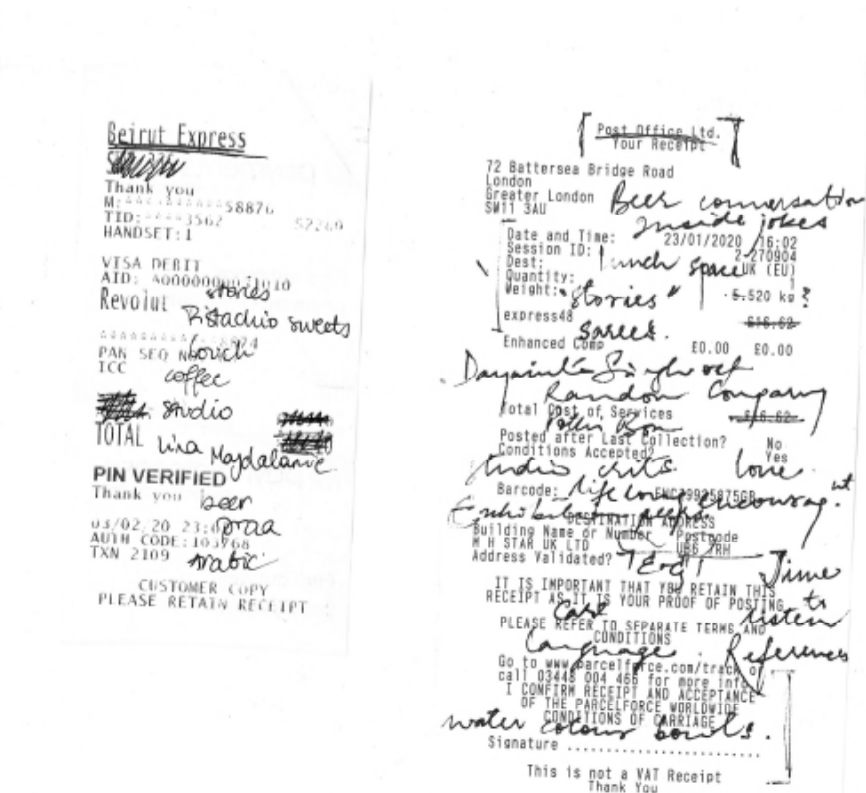 Beirut Express
Thank you
M:************58876
TID:****3562
52269
HANDSET:1
VISA DEBIT
AID:
stories
Revolut
Pistachio sweets
PAN SEQ
ICC
coffee
studio
TOTAL
Lina
Majdalanie
PIN VERIFIED
Thank you
beer
03/02/20
AUTH CODE: 103768
TXN 2109
Arabic
CUSTOMER COPY
PLEASE RETAIN RECEIPT
Post Office Ltd.
Your Receipt
72 Battersea Bridge Road
London
Greater London
SW11 3AU
Beer conversation
Inside jokes
Date and Time: 23/01/2020 16:02
Session ID: 2-270904
Dest: UK (EU)
lunch space
Quantity: 1
Weight: 5.520 kg ?
"stories"
express48 £16.62
sarees.
Enhanced Comp £0.00 £0.00
Dayanita Singh
Random Company
Total Cost of Services £16.62
Posted after Last Collection? No
Conditions Accepted? Yes
studio crits love
Barcode:
DESTINATION ADDRESS
Building Name or Number Postcode
M H STAR UK LTD UB6 7RH
Address Validated?
Time
IT IS IMPORTANT THAT YOU RETAIN THIS
RECEIPT AS IT IS YOUR PROOF OF POSTING
to
Care
listen
PLEASE REFER TO SEPARATE TERMS AND
CONDITIONS
Language. References
Go to www.parcelforce.com/track or
call 03448 004 466 for more info
I CONFIRM RECEIPT AND ACCEPTANCE
OF THE PARCELFORCE WORLDWIDE
CONDITIONS OF CARRIAGE
water colour bowls.
Signature ........................
This is not a VAT Receipt
Thank You